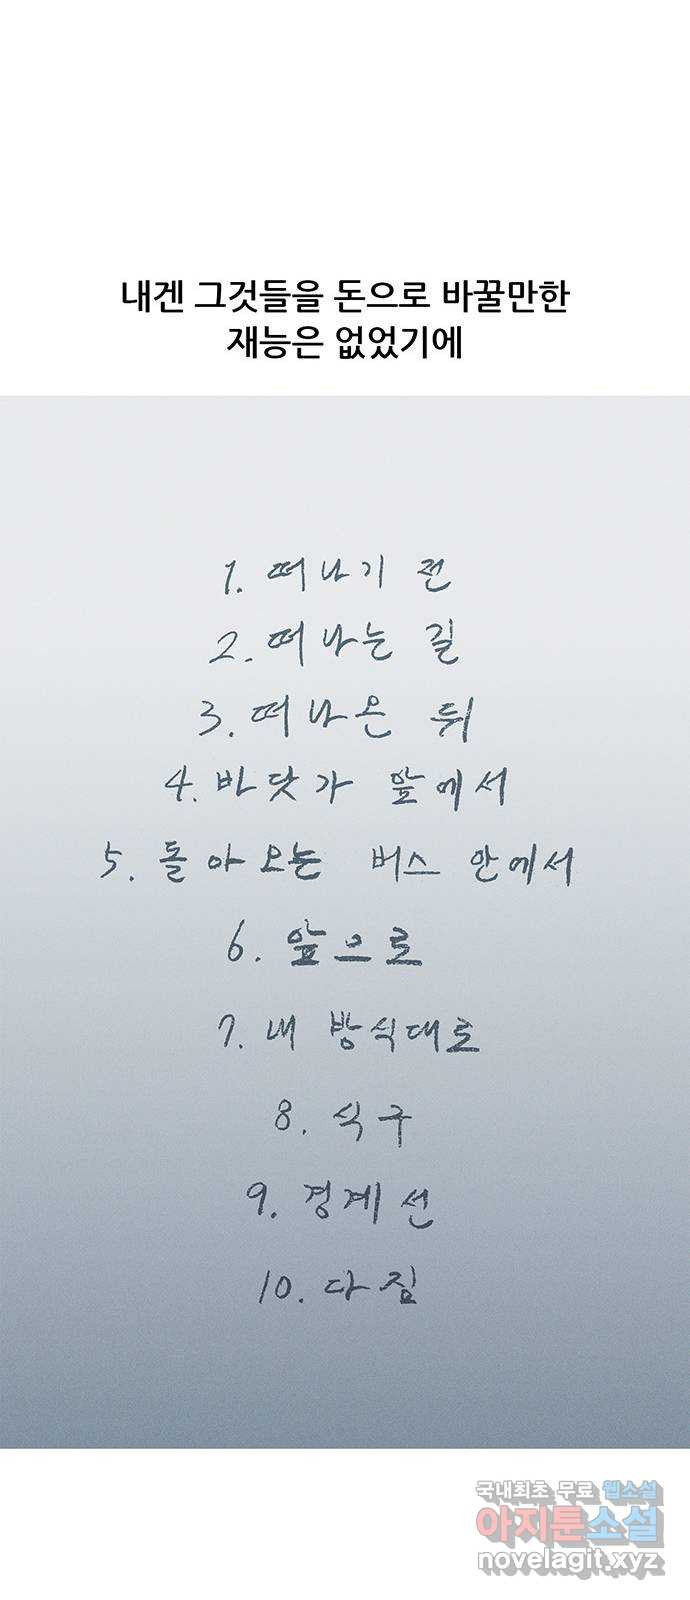 내겐 그것들을 돈으로 바꿀만한
재능은 없었기에
1. 떠나기 전
2. 떠나는 길
3. 떠나온 뒤
4. 바닷가 앞에서
5. 돌아오는 버스 안에서
6. 앞으로
7. 내 방식대로
8. 식구
9. 경계선
10. 다짐
국내최초 무료 웹소설
아지툰소설
novelagit.xyz